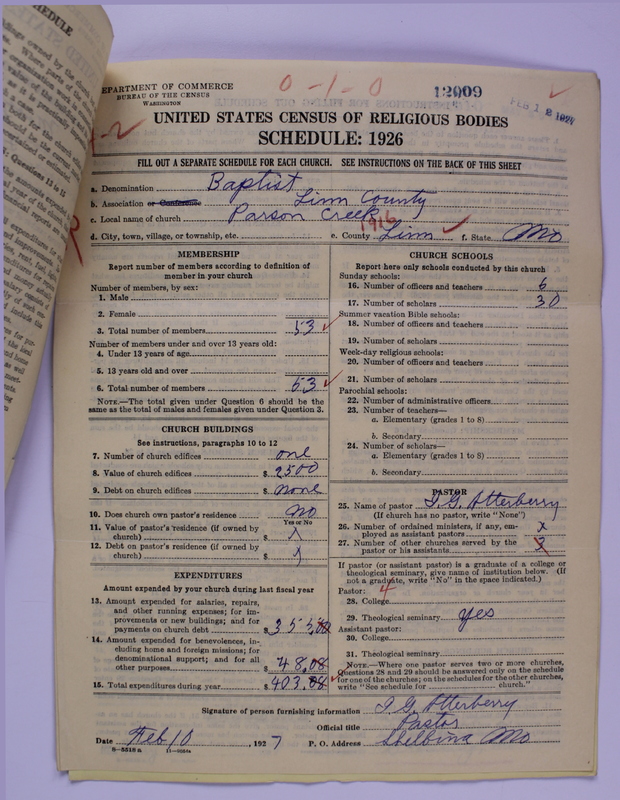 DEPARTMENT OF COMMERCE
BUREAU OF THE CENSUS
WASHINGTON
0-1-0
12009
FEB 12 1927
UNITED STATES CENSUS OF RELIGIOUS BODIES
SCHEDULE: 1926
FILL OUT A SEPARATE SCHEDULE FOR EACH CHURCH. SEE INSTRUCTIONS ON THE BACK OF THIS SHEET
a. Denomination Baptist
b. Association or Conference Linn County
c. Local name of church Parson Creek
1916
d. City, town, village, or township, etc. e. County Linn f. State Mo
MEMBERSHIP
Report number of members according to definition of
member in your church
Number of members, by sex:
1. Male
2. Female
3. Total number of members 53
Number of members under and over 13 years old:
4. Under 13 years of age
5. 13 years old and over
6. Total number of members 53
NOTE.—The total given under Question 6 should be the
same as the total of males and females given under Question 3.
CHURCH BUILDINGS
See instructions, paragraphs 10 to 12
7. Number of church edifices one
8. Value of church edifices $ 2500
9. Debt on church edifices $ none
10. Does church own pastor's residence No
Yes or No
11. Value of pastor's residence (if owned by
church) $ x
12. Debt on pastor's residence (if owned by
church) $ x
EXPENDITURES
Amount expended by your church during last fiscal year
13. Amount expended for salaries, repairs,
and other running expenses; for im-
provements or new buildings; and for
payments on church debt $ 355.00
14. Amount expended for benevolences, in-
cluding home and foreign missions; for
denominational support; and for all
other purposes $ 48.08
15. Total expenditures during year $ 403.08
CHURCH SCHOOLS
Report here only schools conducted by this church
Sunday schools:
16. Number of officers and teachers 6
17. Number of scholars 30
Summer vacation Bible schools:
18. Number of officers and teachers
19. Number of scholars
Week-day religious schools:
20. Number of officers and teachers
21. Number of scholars
Parochial schools:
22. Number of administrative officers
23. Number of teachers—
a. Elementary (grades 1 to 8)
b. Secondary
24. Number of scholars—
a. Elementary (grades 1 to 8)
b. Secondary
PASTOR
25. Name of pastor I. G. Atterberry
(If church has no pastor, write "None")
26. Number of ordained ministers, if any, em-
ployed as assistant pastors x
27. Number of other churches served by the
pastor or his assistants 3
4
If pastor (or assistant pastor) is a graduate of a college or
theological seminary, give name of institution below. (If
not a graduate, write "No" in the space indicated.)
Pastor:
28. College
29. Theological seminary yes
Assistant pastor:
30. College
31. Theological seminary
NOTE.—Where one pastor serves two or more churches,
Questions 28 and 29 should be answered only on the schedule
for one of the churches; on the schedules for the other churches,
write "See schedule for church."
Signature of person furnishing information I G Atterberry
Official title Pastor
Date Feb 10, 1927 P. O. Address Shelbina Mo
8-5518 a